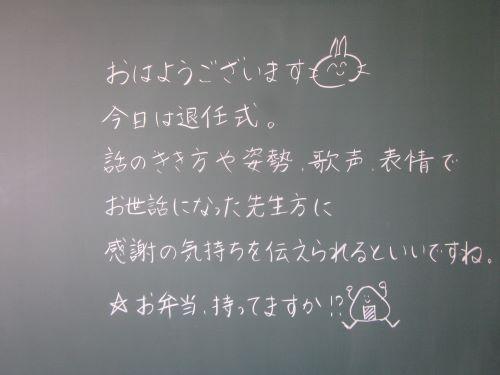 おはようございます
今日は退任式。
話のきき方や姿勢、歌声、表情で
お世話になった先生方に
感謝の気持ちを伝えられるといいですね。
☆お弁当、持ってますか!?